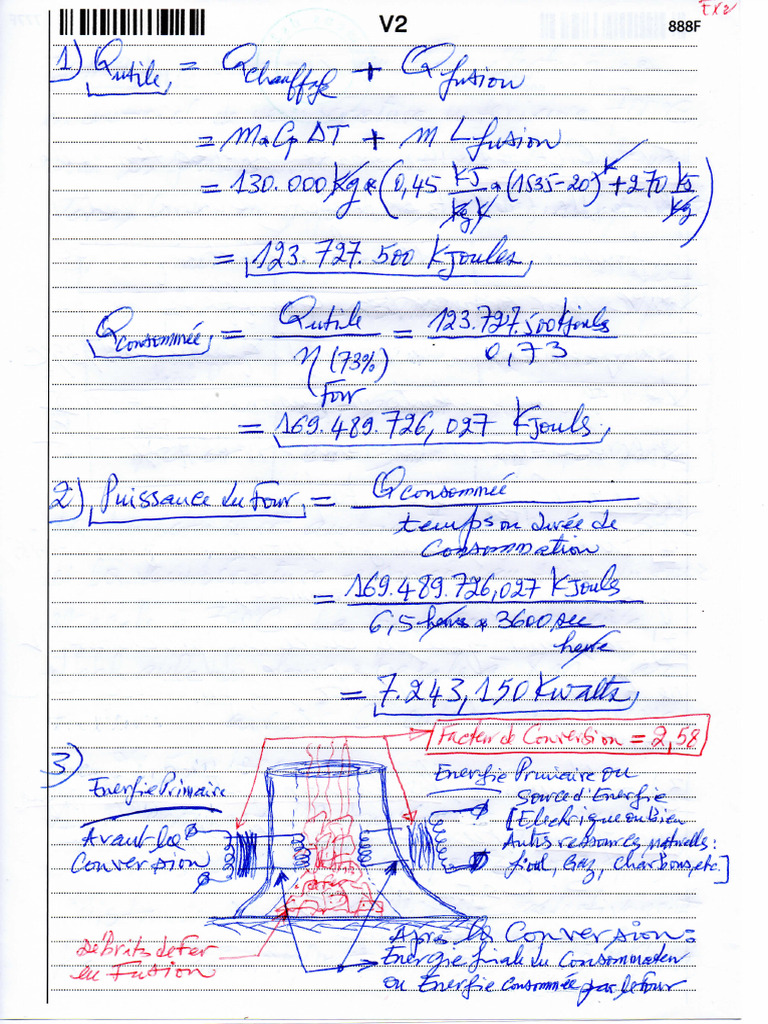 EX2
V2
888F
1) Qutile = Qchauffage + Qfusion
= m * Cp ΔT + m Lfusion
= 130.000 Kg * (0,45 KJ/Kg K * (1535-20) + 270 KJ/Kg)
= 123.727.500 KJoules
Qconsommée = Qutile / η (73%) Four = 123.727.500 KJouls / 0,73
= 169.489.726,027 KJouls
2) Puissance du Four = Qconsommée / temps ou durée de Consommation
= 169.489.726,027 KJouls / 6,5 heures * 3600 sec/heure
= 7.243,150 Kwatts
Facteur de Conversion = 2,58
3)
Energie Primaire
Avant la
Conversion
Energie Primaire ou
Source d'Energie
[Electrique ou bien
Autres ressources naturelles:
fioul, Gaz, charbons, etc.]
Débrits de Fer
en Fusion
Après la Conversion:
Energie finale du Consommateur
ou Energie consommée par le four